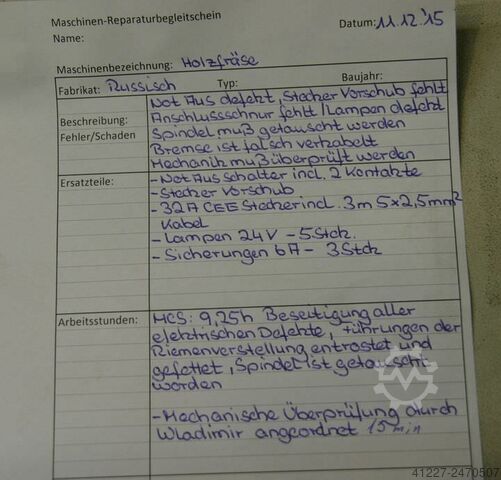 Maschinen-Reparaturbegleitschein
Name:
Datum: 11.12.'15
Maschinenbezeichnung: Holzfräse
Fabrikat: Russisch Typ: Baujahr:
Beschreibung:
Fehler/Schaden
Not Aus defekt, Stecker Vorschub fehlt
Anschlussschnur fehlt / Lampen defekt
Spindel muß getauscht werden
Bremse ist falsch verkabelt
Mechanik muß überprüft werden
Ersatzteile:
- Not Aus Schalter incl. 2 Kontakte
- Stecker Vorschub
- 32A CEE Stecker incl. 3m 5x2,5mm²
Kabel
- Lampen 24V - 5Stck.
- Sicherungen 6A - 3Stck
Arbeitsstunden:
MCS: 9,25h Beseitigung aller
elektrischen Defekte, Führungen der
Riemenverstellung entrostet und
gefettet, Spindel ist getauscht
worden
- Mechanische Überprüfung durch
Wladimir angeordnet 15min
41227-2470507